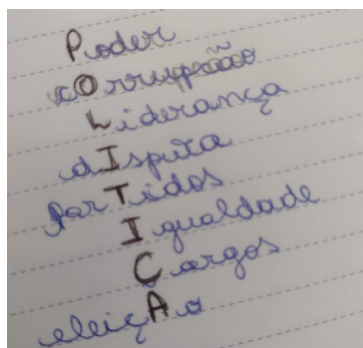 Poder
cOrrupção
Liderança
dIsputa
parTidos
Igualdade
Cargos
eleiçÃo